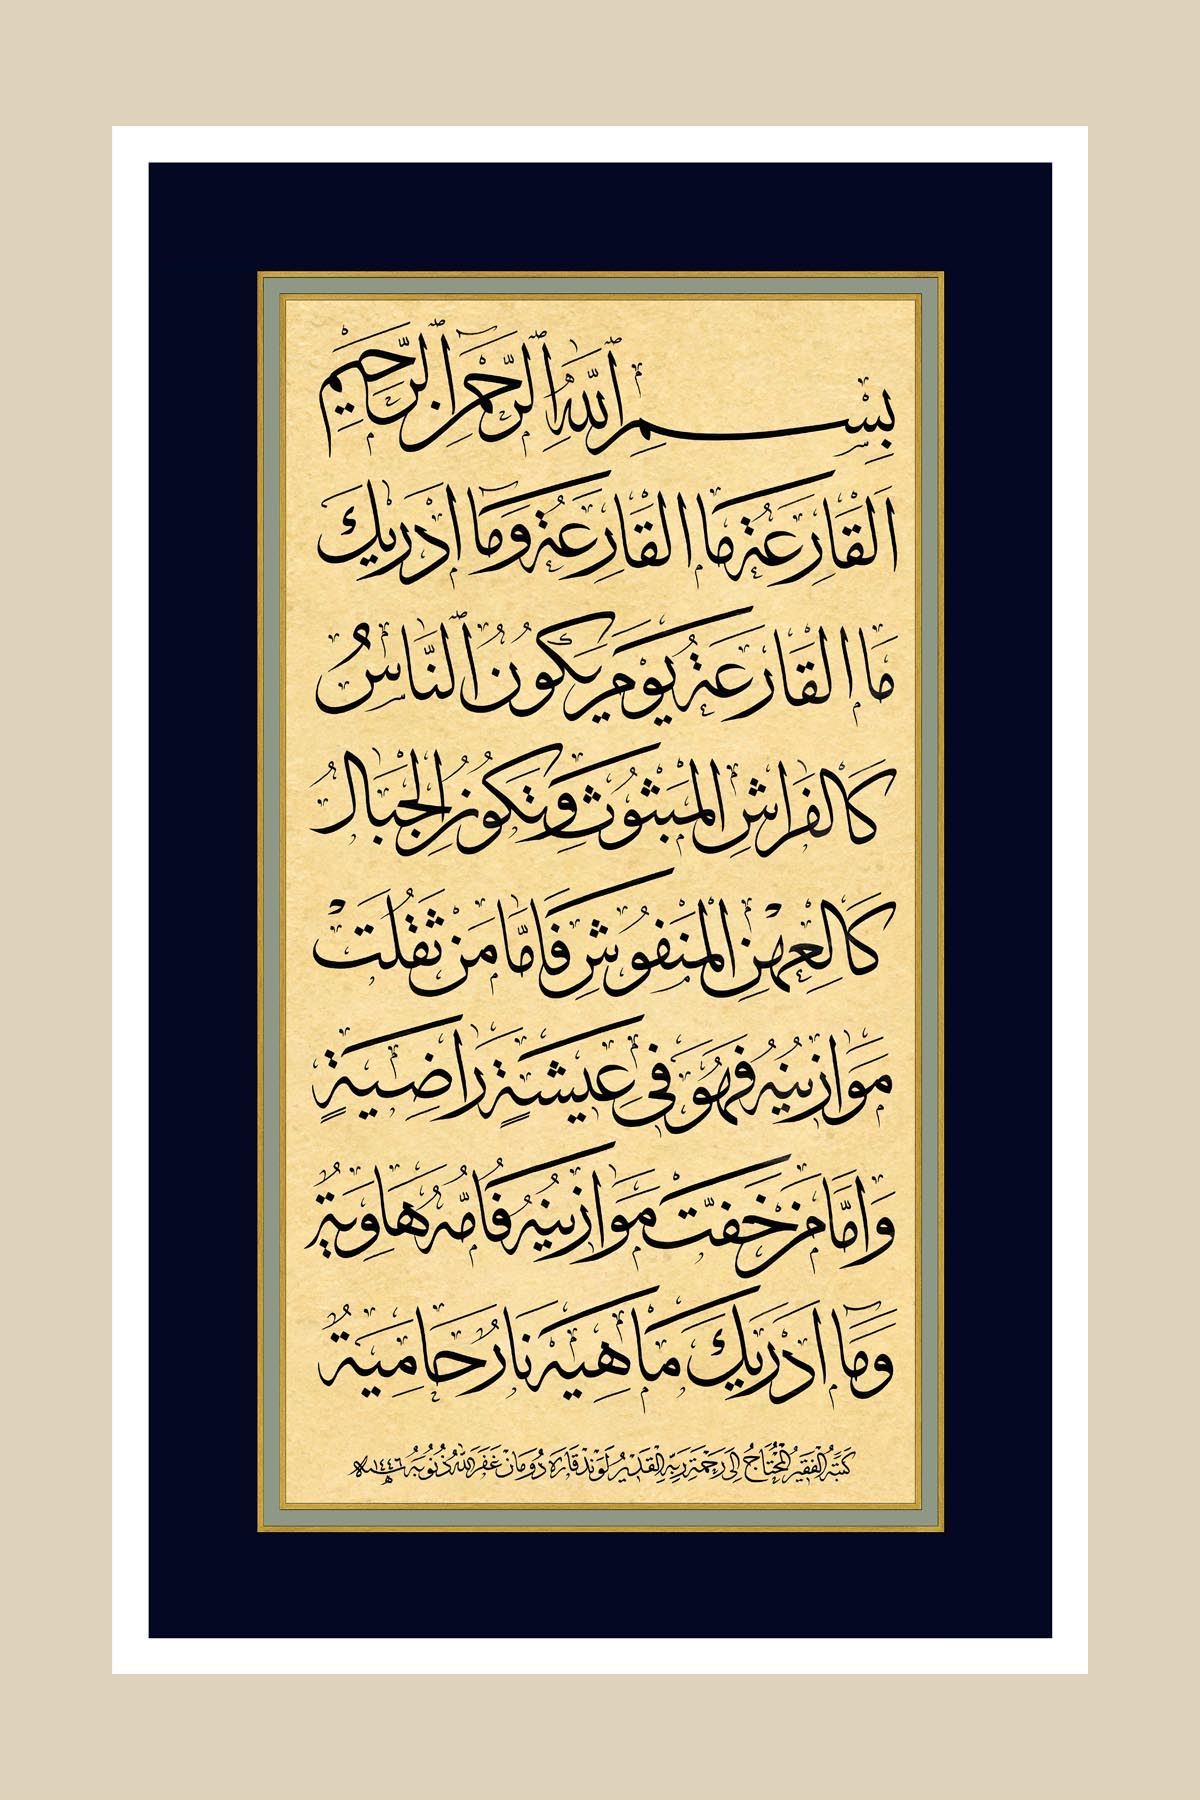 بِسْمِ ٱللّٰهِ ٱلرَّحْمٰنِ ٱلرَّحِيمِ
اَلْقَارِعَةُ مَا الْقَارِعَةُ وَمَٓا اَدْرٰيكَ
مَا الْقَارِعَةُ يَوْمَ يَكُونُ ٱلنَّاسُ
كَالْفَرَاشِ الْمَبْثُوثِ وَتَكُونُ الْجِبَالُ
كَالْعِهْنِ الْمَنْفُوشِ فَاَمَّا مَنْ ثَقُلَتْ
مَوَازِينُهُ فَهُوَ فِى عِيشَةٍ رَاضِيَةٍ
وَاَمَّا مَنْ خَفَّتْ مَوَازِينُهُ فَاُمُّهُ هَاوِيَةٌ
وَمَٓا اَدْرٰيكَ مَا هِيَهْ نَارٌ حَامِيَةٌ
كَتَبَهُ الْفَقِيرُ الْمُحْتَاجُ اِلَى رَحْمَةِ رَبِّهِ الْقَدِيرِ لَوَنْد قَارَه دُومَانْ غَفَرَ اللّٰهُ ذُنُوبَهُ ١٤٤٦ هـ